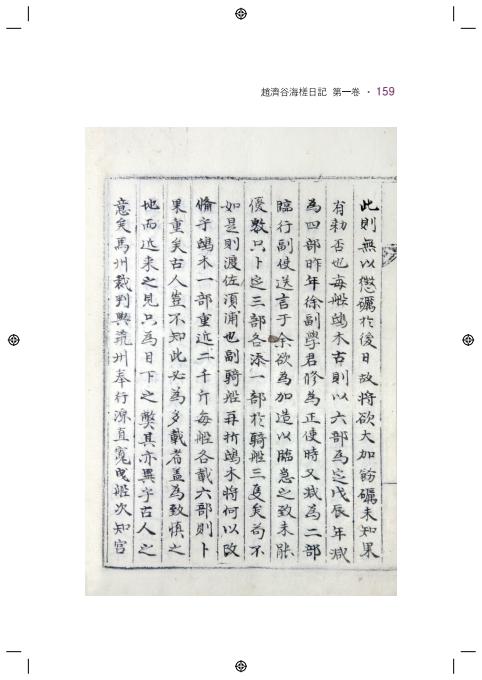 趙濟谷海槎日記 第一卷 · 159
此則無以懲礪於後日故將欲大加飭礪未知果
有勅否也每船鴟木古則以六部為定戊辰年减
為四部昨年徐副學君修為正使時又减為二部
臨行副使送言于余欲為加造以臨急之致未能
優數只卜定三部各添一部於騎船三隻矣若不
如是則渡佐須浦也副騎船再折鴟木將何以改
備乎鴟木一部重近二千斤每船各載六部則卜
果重矣古人豈不知此必為多載者盖為致慎之
地而近來之見只為目下之弊其亦異乎古人之
意矣馬州裁判與荒州奉行源直寬曳船次知官